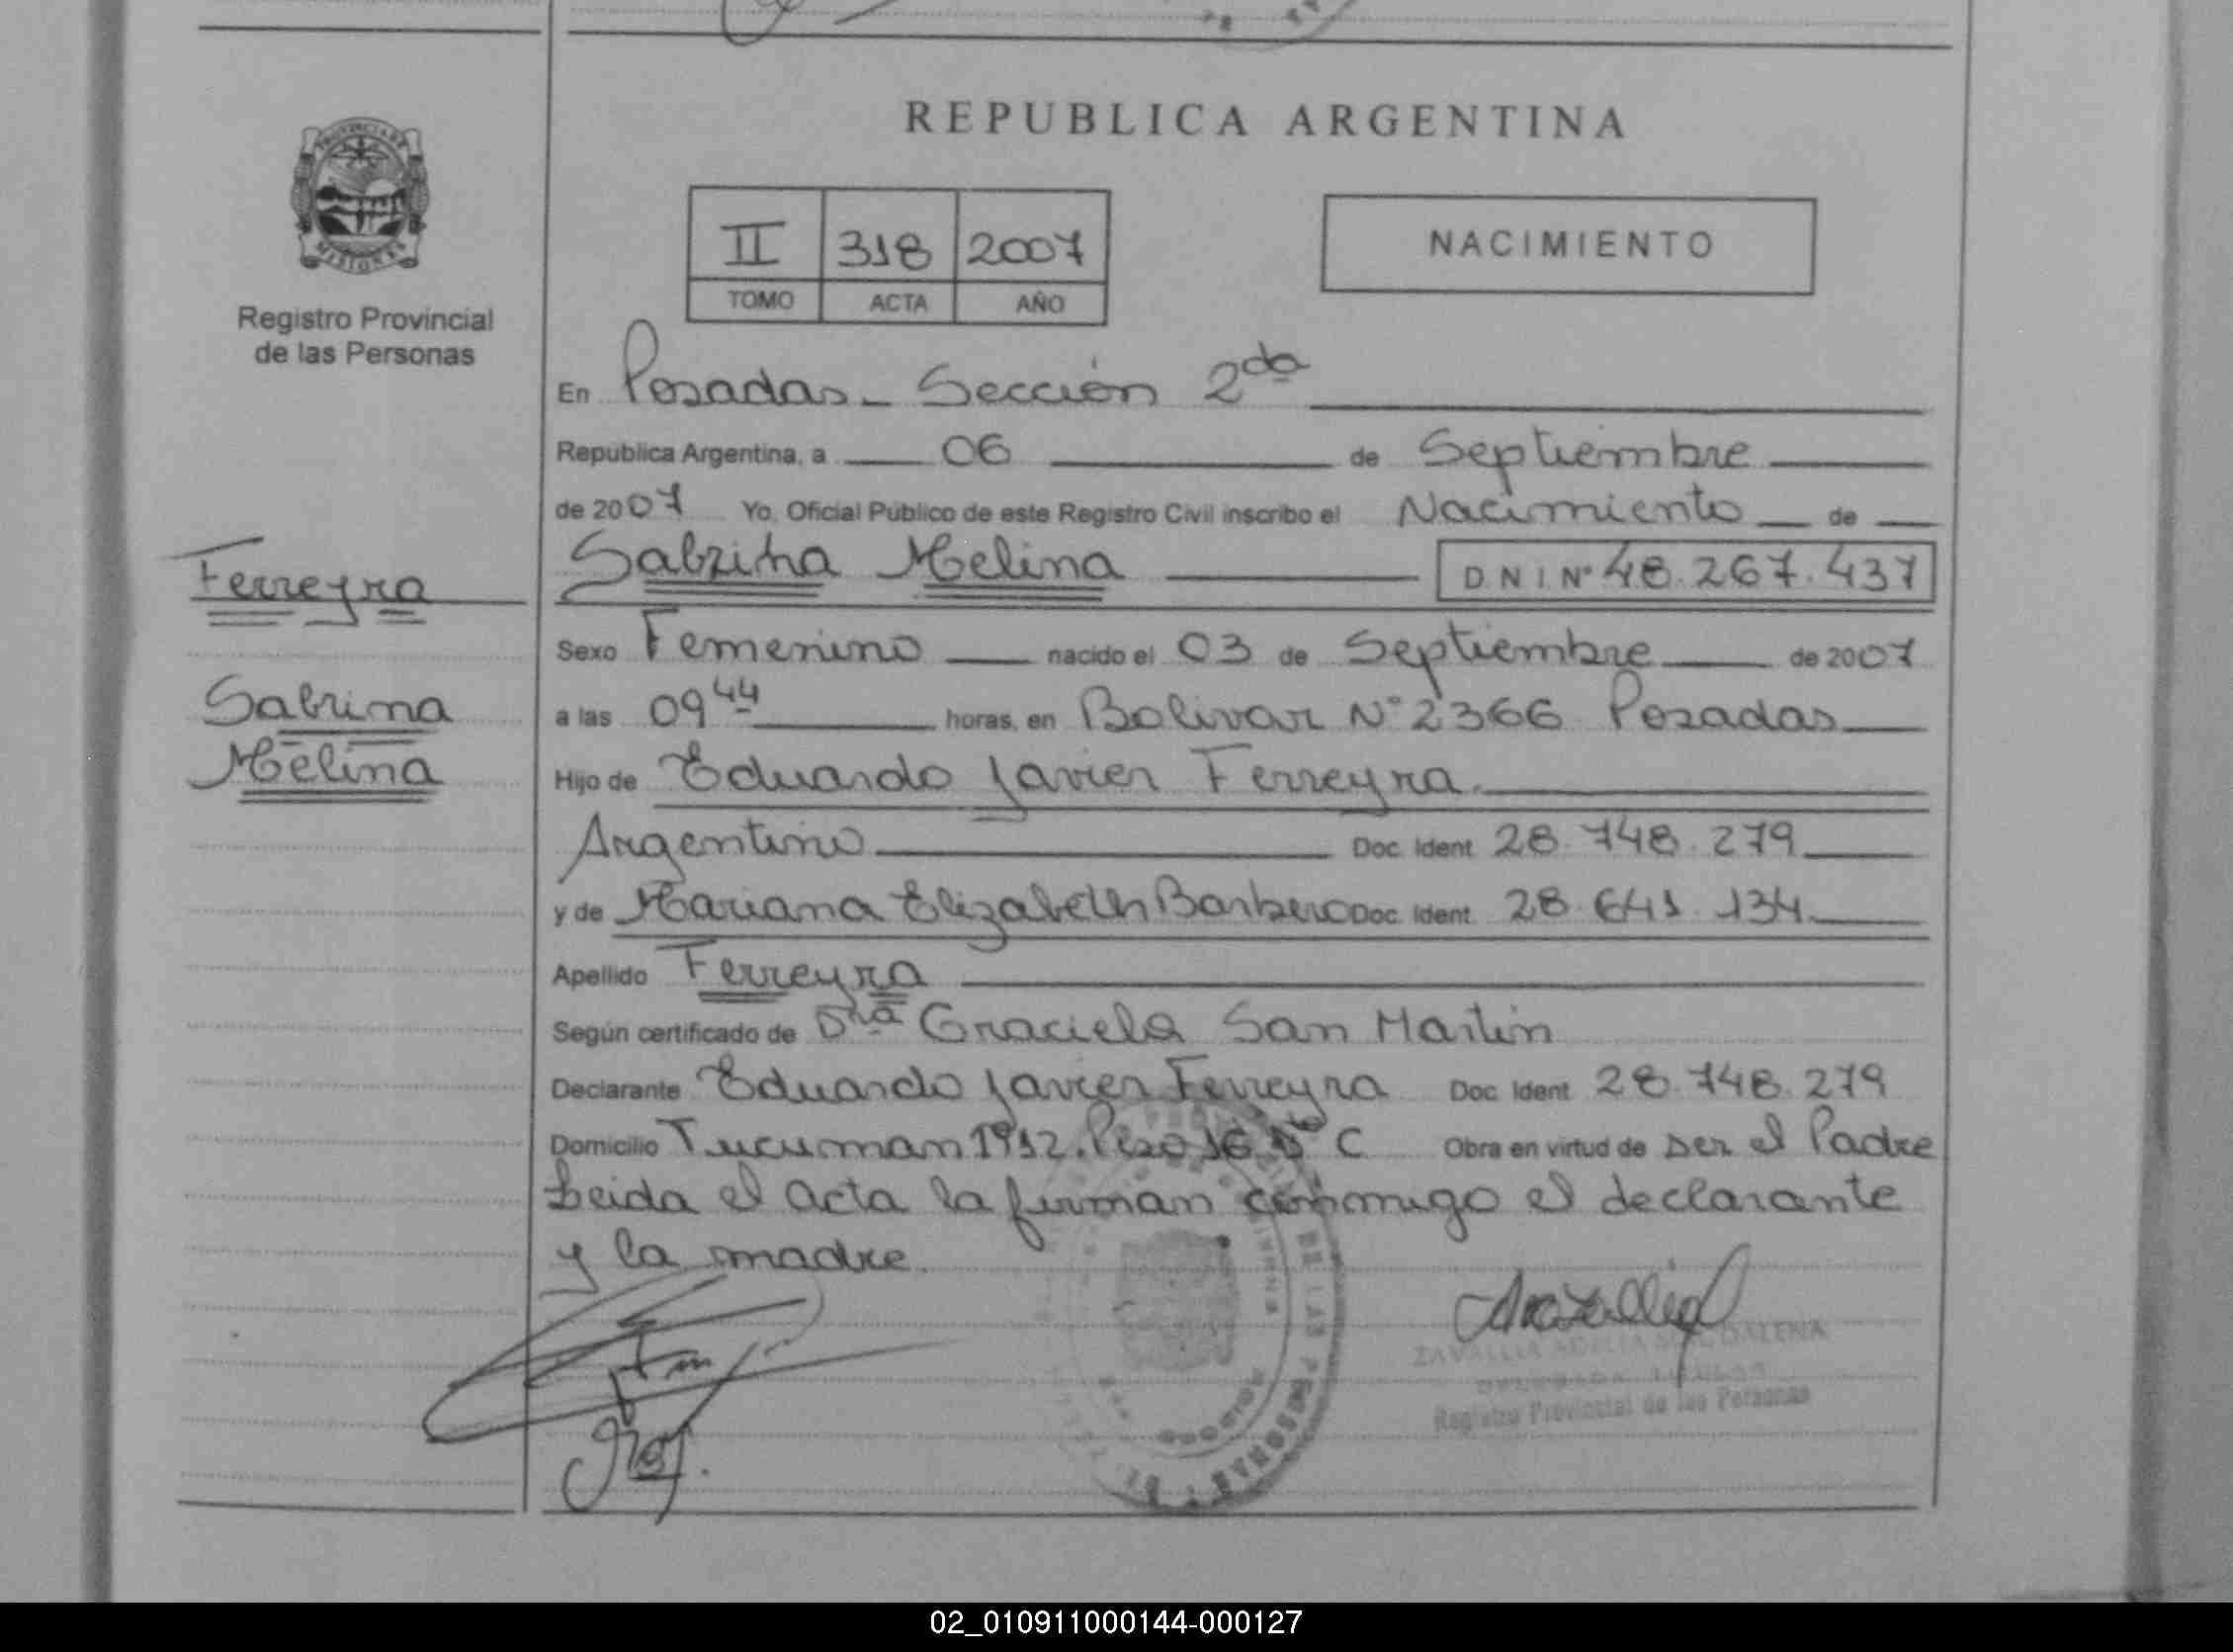 REPUBLICA ARGENTINA
PROVINCIA DE
MISIONES
Registro Provincial
de las Personas
II 318 2007
TOMO ACTA AÑO
NACIMIENTO
En Posadas - Sección 2da
Republica Argentina, a 06 de Septiembre
de 2007 Yo, Oficial Público de este Registro Civil inscribo el Nacimiento de
Ferreyra
Sabrina Melina D N I Nº 48.267.437
Sexo Femenino nacido el 03 de Septiembre de 2007
Sabrina
Melina
a las 09 44 horas, en Bolivar Nº 2366 Posadas
Hijo de Eduardo Javier Ferreyra
Argentino Doc. Ident 28.748.279
y de Mariana Elizabeth Barbero Doc. Ident 28.641.134
Apellido Ferreyra
Según certificado de Dra Graciela San Martin
Declarante Eduardo Javier Ferreyra Doc. Ident 28.748.279
Domicilio Tucuman 1912. Piso 16 C Obra en virtud de ser el Padre
Leida el acta la firman conmigo el declarante
y la madre.
DE LAS PERSONAS
Registro Provincial de las Personas
02_010911000144-000127